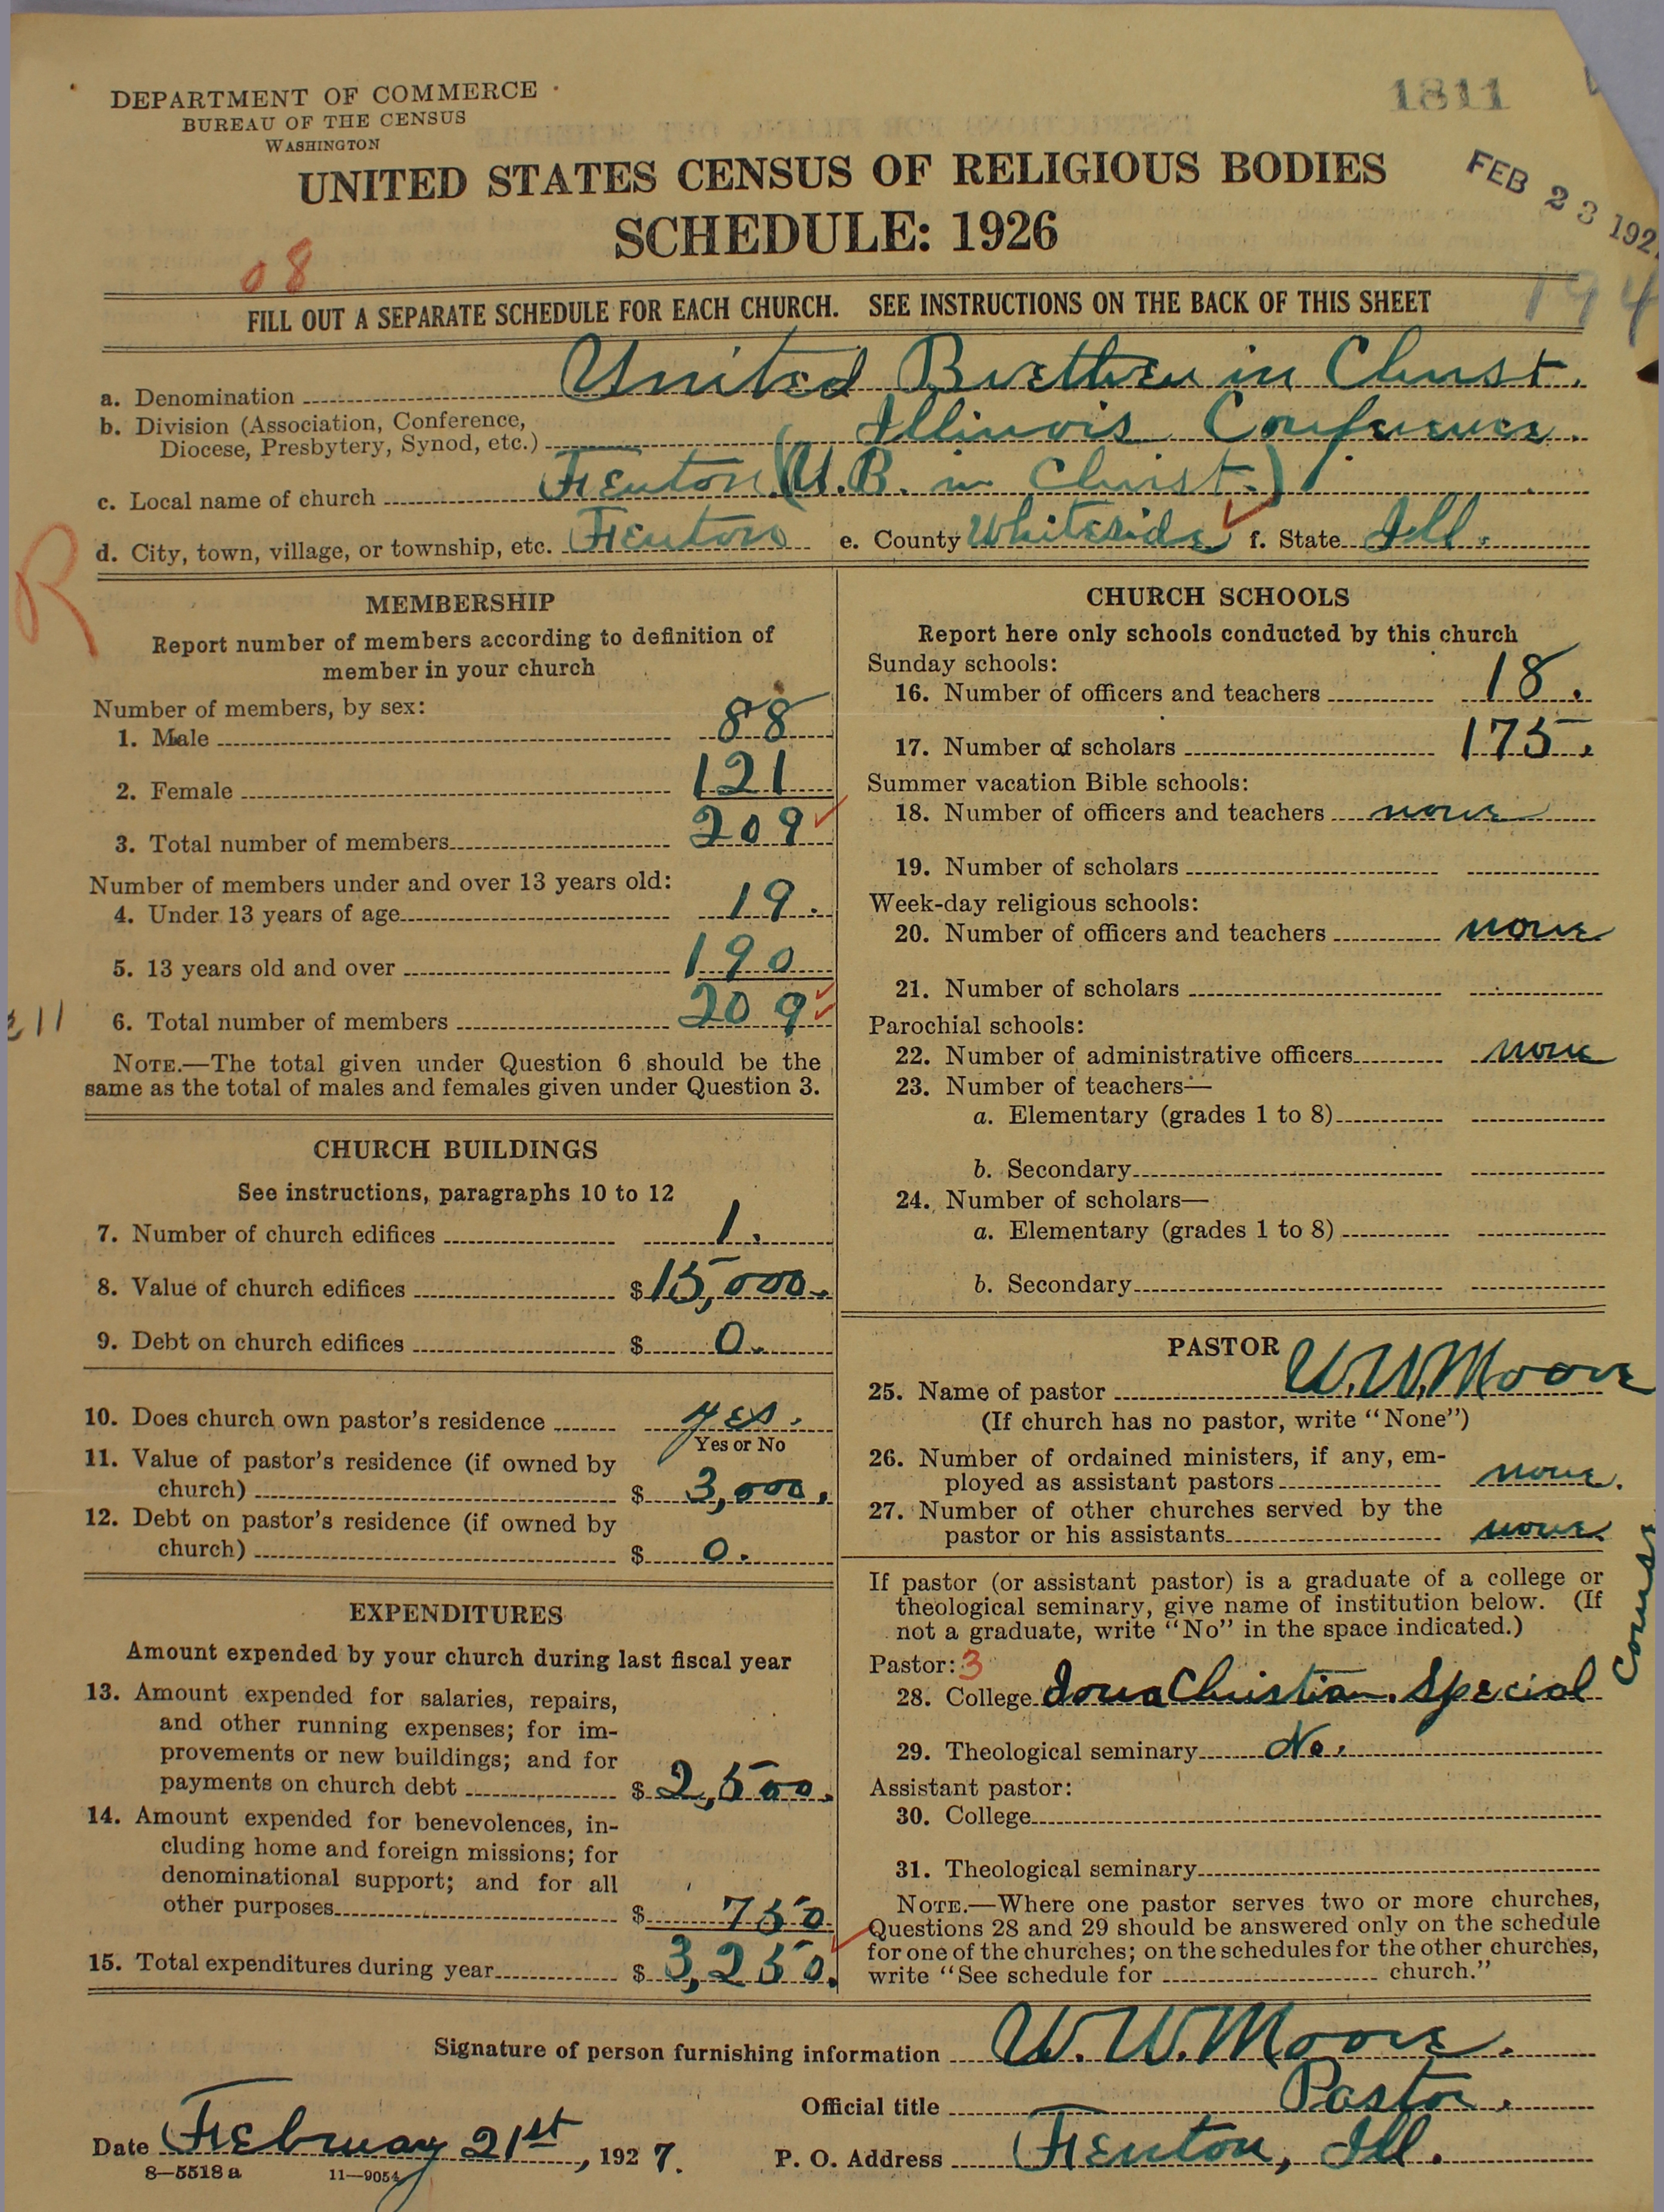 DEPARTMENT OF COMMERCE
BUREAU OF THE CENSUS
WASHINGTON
1811
UNITED STATES CENSUS OF RELIGIOUS BODIES
SCHEDULE: 1926
FEB 23 192
08
194
FILL OUT A SEPARATE SCHEDULE FOR EACH CHURCH. SEE INSTRUCTIONS ON THE BACK OF THIS SHEET
a. Denomination United Brethren in Christ.
b. Division (Association, Conference,
Diocese, Presbytery, Synod, etc.) Illinois Conference.
c. Local name of church Fenton (U.B. in Christ.)
d. City, town, village, or township, etc. Fenton e. County Whiteside f. State Ill.
R
MEMBERSHIP
Report number of members according to definition of
member in your church
Number of members, by sex:
1. Male 88
2. Female 121
3. Total number of members 209
Number of members under and over 13 years old:
4. Under 13 years of age 19.
5. 13 years old and over 190
6. Total number of members 209
NOTE.—The total given under Question 6 should be the
same as the total of males and females given under Question 3.
CHURCH BUILDINGS
See instructions, paragraphs 10 to 12
7. Number of church edifices 1.
8. Value of church edifices $15,000.
9. Debt on church edifices $ 0.
10. Does church own pastor's residence yes.
Yes or No
11. Value of pastor's residence (if owned by
church) $ 3,000.
12. Debt on pastor's residence (if owned by
church) $ 0.
EXPENDITURES
Amount expended by your church during last fiscal year
13. Amount expended for salaries, repairs,
and other running expenses; for im-
provements or new buildings; and for
payments on church debt $ 2,500.
14. Amount expended for benevolences, in-
cluding home and foreign missions; for
denominational support; and for all
other purposes $ 750
15. Total expenditures during year $ 3,250.
CHURCH SCHOOLS
Report here only schools conducted by this church
Sunday schools:
16. Number of officers and teachers 18.
17. Number of scholars 175.
Summer vacation Bible schools:
18. Number of officers and teachers none
19. Number of scholars
Week-day religious schools:
20. Number of officers and teachers none
21. Number of scholars
Parochial schools:
22. Number of administrative officers none
23. Number of teachers—
a. Elementary (grades 1 to 8)
b. Secondary
24. Number of scholars—
a. Elementary (grades 1 to 8)
b. Secondary
PASTOR
25. Name of pastor W.W. Moore
(If church has no pastor, write "None")
26. Number of ordained ministers, if any, em-
ployed as assistant pastors none.
27. Number of other churches served by the
pastor or his assistants none
If pastor (or assistant pastor) is a graduate of a college or
theological seminary, give name of institution below. (If
not a graduate, write "No" in the space indicated.)
Pastor: 3
28. College Iowa Christian. Special Course
29. Theological seminary No.
Assistant pastor:
30. College
31. Theological seminary
NOTE.—Where one pastor serves two or more churches,
Questions 28 and 29 should be answered only on the schedule
for one of the churches; on the schedules for the other churches,
write "See schedule for church."
Signature of person furnishing information W. W. Moore.
Official title Pastor.
Date February 21st, 1927. P. O. Address Fenton, Ill.
8—5518a 11—9054